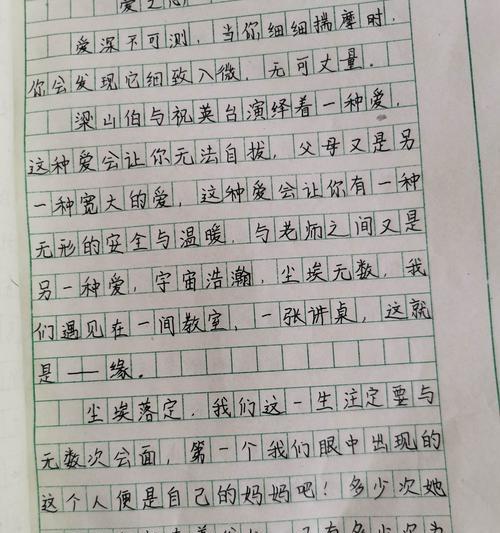 爱深不可测，当你细细揣摩时，
你会发现它细致入微，无可丈量。
梁山伯与祝英台演绎着一种爱，
这种爱会让你无法自拔，父母又是另
一种宽大的爱，这种爱会让你有一种
无形的安全与温暖，与老师之间又是
另一种爱，宇宙浩瀚，尘埃无数，我
们遇见在一间教室，一张讲桌，这就
是——缘。
尘埃落定，我们这一生注定要与
无数次会面，第一个我们眼中出现的
这个人便是自己的妈妈吧！多少次她